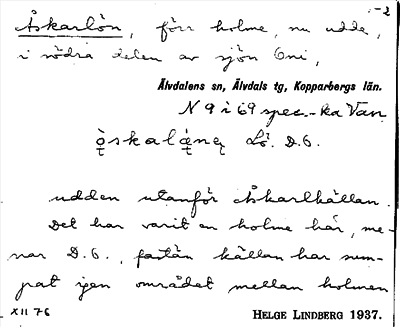 -2
Åskarlön, förr holme, nu udde,
i södra delen av sjön Oni,
Älvdalens sn, Älvdals tg, Kopparbergs län.
N 9 i 69 spec.-ka Van
Lö. D.6.
udden utanför Åskarlkällan.
Det har varit en holme här, me-
nar D.6., fastän källan har sum-
pat igen området mellan holmen
XII 76
HELGE LINDBERG 1937.